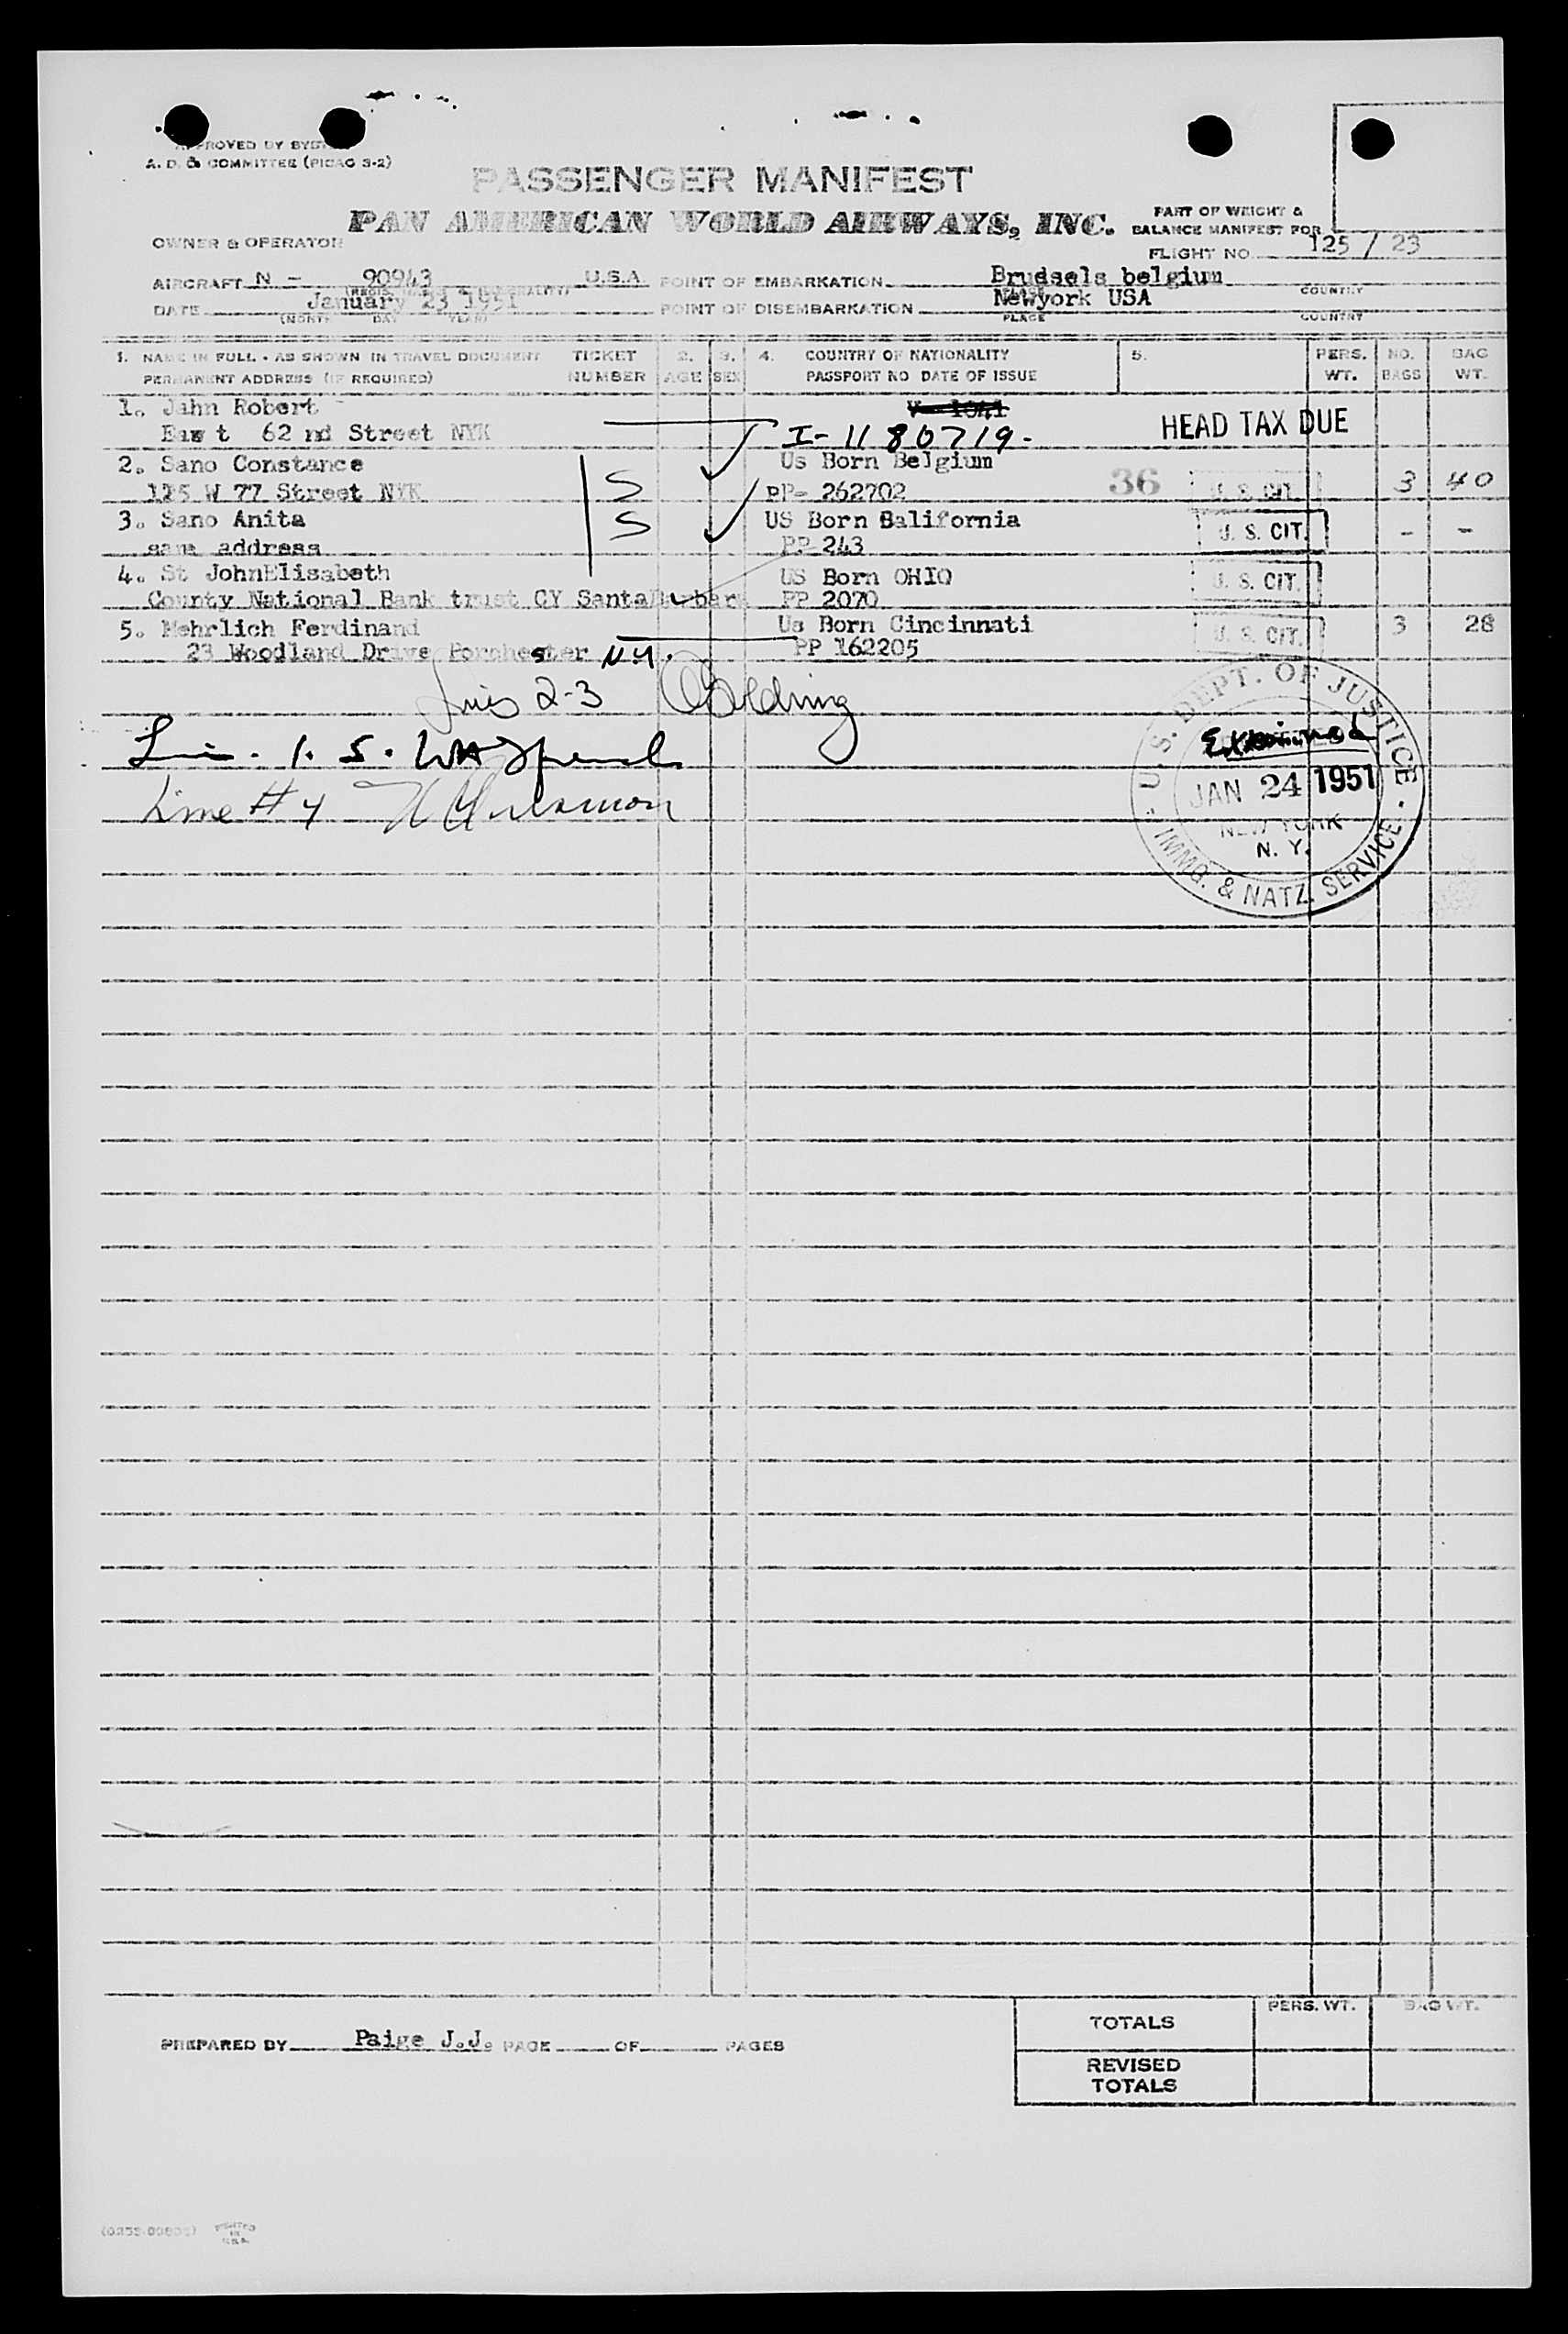 APPROVED BY
A. D. & COMMITTEE (PICAO S-2)
PASSENGER MANIFEST
PAN AMERICAN WORLD AIRWAYS, INC.
PART OF WEIGHT &
BALANCE MANIFEST FOR
OWNER & OPERATOR
FLIGHT NO. 125 / 23
AIRCRAFT N - 90943 U.S.A POINT OF EMBARKATION Brudsels belgium
COUNTRY
DATE January 23 1951 POINT OF DISEMBARKATION Newyork USA
(MONTH DAY YEAR) PLACE COUNTRY
1. NAME IN FULL - AS SHOWN IN TRAVEL DOCUMENT TICKET 2. 3. 4. COUNTRY OF NATIONALITY 5. PERS. NO. BAG
PERMANENT ADDRESS (IF REQUIRED) NUMBER AGE SEX PASSPORT NO DATE OF ISSUE WT. BAGS WT.
1. Jahn Robert
East 62 nd Street NYK I-1180719- HEAD TAX DUE
2. Sano Constance Us Born Belgium
S 36 U. S. CIT. 3 40
W 77 Street NYK PP- 262702
3. Sano Anita S US Born Balifornia U. S. CIT. - -
same address PP 243
4. St JohnElisabeth US Born OHIO U. S. CIT.
County National Bank trust CY Santa bar PP 2070
5. Mehrlich Ferdinand Us Born Cincinnati U. S. CIT. 3 28
23 Woodland Drive Porchester N.Y. PP 162205
2-3
1. 5.
Line # 4
U.S. DEPT. OF JUSTICE
Examined
JAN 24 1951
NEW YORK
N. Y.
IMMG. & NATZ. SERVICE
TOTALS PERS. WT. BAG WT.
PREPARED BY Paige J.J. PAGE OF PAGES
REVISED
TOTALS
PRINTED
IN
U.S.A.